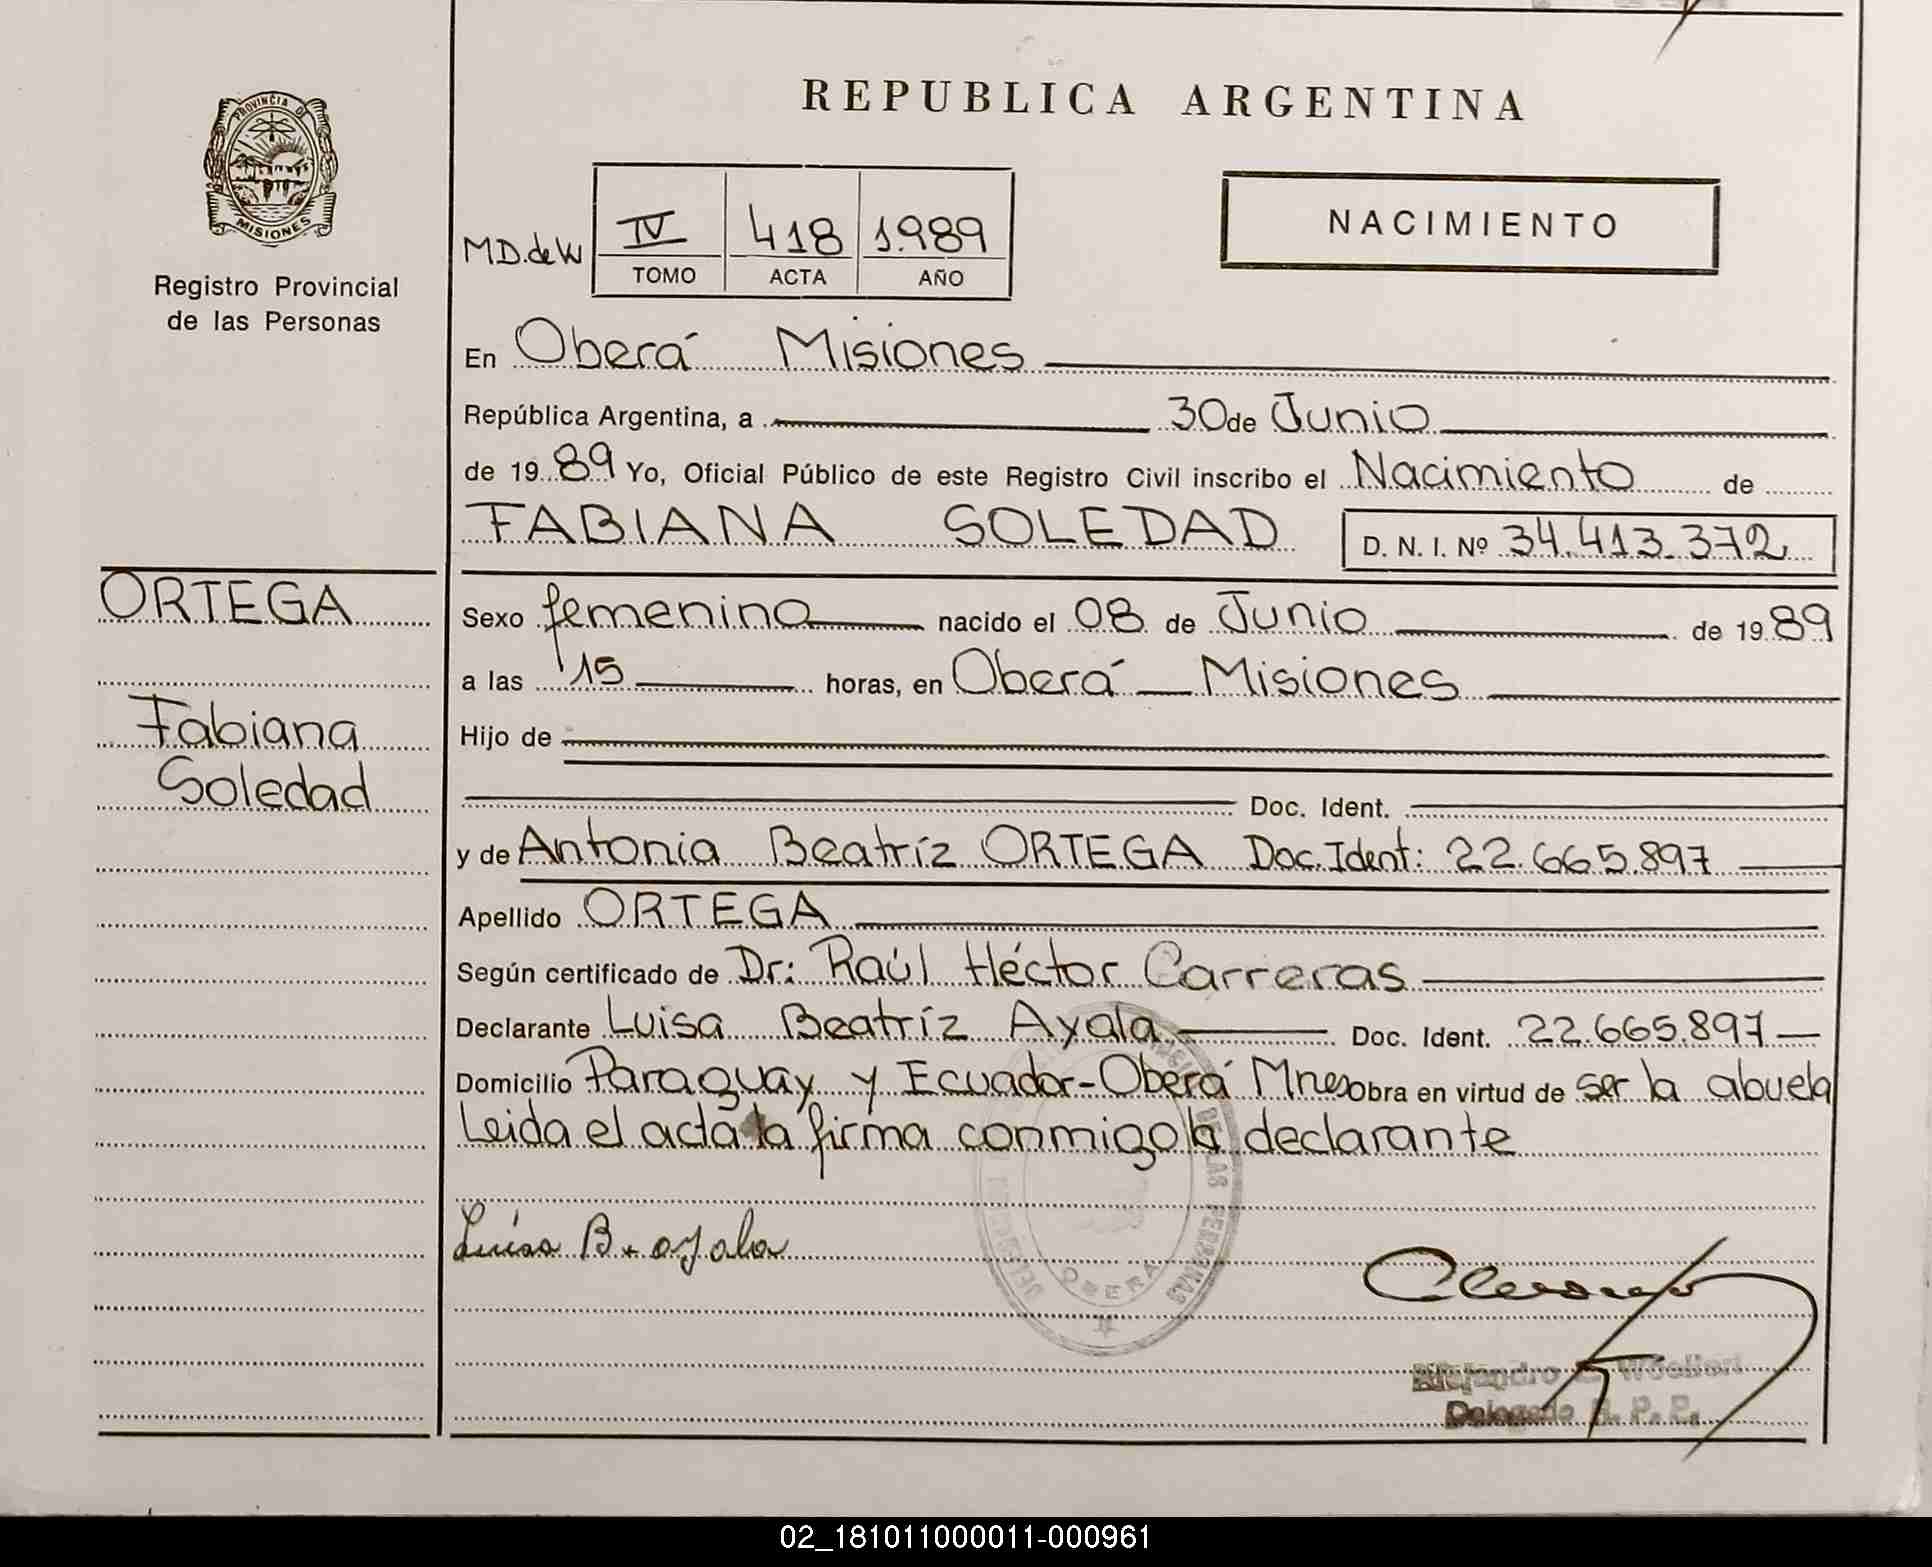 REPUBLICA ARGENTINA
PROVINCIA DE
MISIONES
Registro Provincial
de las Personas
MD.de W
IV 418 1.989
TOMO ACTA AÑO
NACIMIENTO
En Oberá Misiones
República Argentina, a 30 de Junio
de 19 89 Yo, Oficial Público de este Registro Civil inscribo el Nacimiento de
FABIANA SOLEDAD D. N. I. Nº 34.413.372
ORTEGA
Fabiana
Soledad
Sexo femenino nacido el 08 de Junio de 19 89
a las 15 horas, en Oberá Misiones
Hijo de
Doc. Ident.
y de Antonia Beatríz ORTEGA Doc. Ident: 22.665.897
Apellido ORTEGA
Según certificado de Dr: Raúl Héctor Carreras
Declarante Luisa Beatríz Ayala Doc. Ident. 22.665.897
Domicilio Paraguay y Ecuador-Oberá Mnes Obra en virtud de ser la abuela
Leida el acta la firma conmigo la declarante
Luisa B. ayala
DE LAS PERSONAS
OBERA
Alejandro
Delegado R. P. P.
02_181011000011-000961